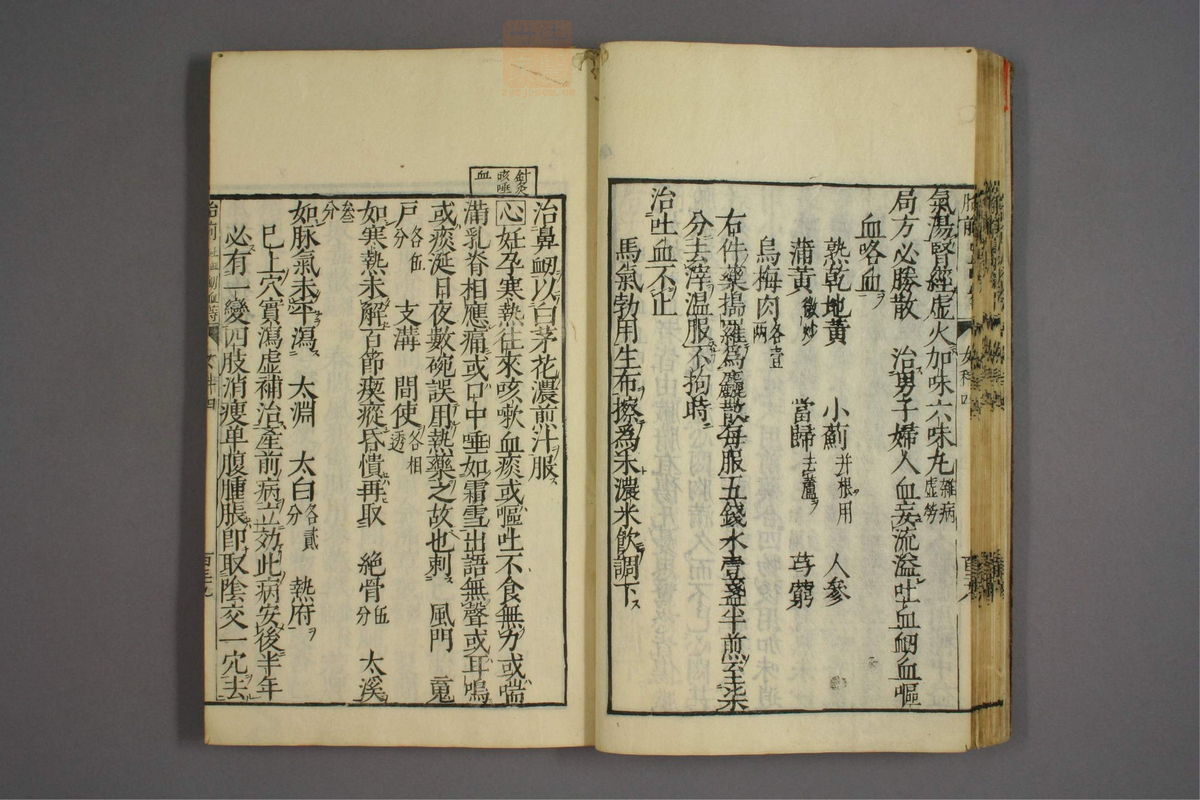 氣湯腎經虛火加味六味丸雜病虛勞
局方必勝散　治男子婦人血妄流溢吐血衂血嘔
血咯血
熟乾地黃　小薊并根用　人參
蒲黃微炒　當歸去蘆　芎藭
烏梅肉各壹兩
右件藥搗羅爲麤散每服五錢水壹盞半煎至柒
分去滓温服不拘時
治吐血不止
馬氣勃用生布擦為末濃米飲調下
治鼻衂以白茅花濃煎汁服
針灸咳唾血
心妊孕寒熱往來咳嗽血痰或嘔吐不食無力或喘
滿乳脊相應痛或口中唾如霜雪出語無聲或耳鳴
或痰涎日夜數碗誤用熱藥之故也刺　風門
戶各伍分　支溝　間使各相透
如寒熱未解百節瘈瘲昏憒再取　絕骨伍分　太溪
叁分
如脉氣未平瀉　太淵　太白各貳分　熱府
已上穴實瀉虛補治產前病立効此病安後半年
必有一變四肢消瘦单腹腫脹即取陰交一穴去